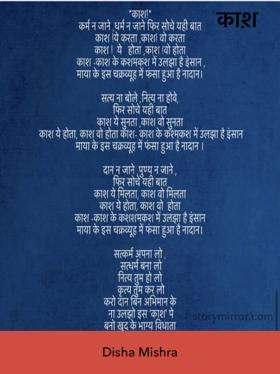 काश़
"काश!"
कर्म न जाने ,धर्म न जाने फिर सोचे यही बात
काश !ये करता ,काश! वो करता
काश ! ये होता ,काश !वो होता
काश -काश के कशमकश में उलझा है इंसान ,
माया के इस चक्रव्यूह में फंसा हुआ है नादान।
सत्य ना बोले ,नित्य ना होवे,
फिर सोचे यही बात
काश ये सुनता ,काश वो सुनता
काश ये होता, काश वो होता काश- काश के कशमकश में उलझा है इंसान
माया के इस चक्रव्यूह में फंसा हुआ है नादान ।
दान न जाने ,पुण्य न जाने ,
फिर सोचे यही बात
काश ये मिलता, काश वो मिलता
काश ये होता, काश वो होता
काश -काश के कशशमकश में उलझा है इंसान
माया के इस चक्रव्यूह में फंसा हुआ है नादान।
सत्कर्म अपना लो ,
सत्धर्म बना लो
नित्य तुम हो लो
कृत्य तुम कर लो
करो दान बिन अभिमान के
ना उलझो इस 'काश' पे
बनो खुद के भाग्य विधाता
storymirror.com
Disha Mishra